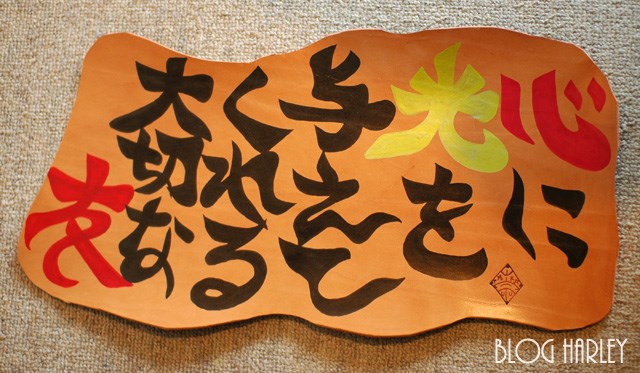 心に
光を
与えて
くれる
大切な
友
BLOG HARLEY